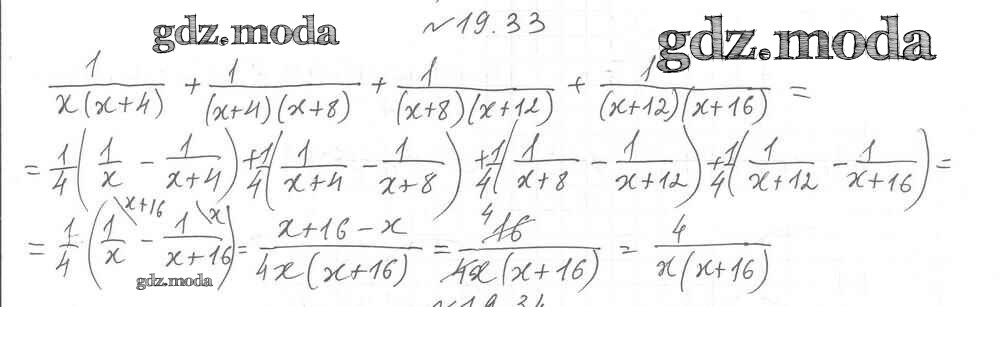 gdz.moda №19.33 gdz.moda
1/(x(x+4)) + 1/((x+4)(x+8)) + 1/((x+8)(x+12)) + 1/((x+12)(x+16)) =
= 1/4 (1/x - 1/(x+4)) + 1/4 (1/(x+4) - 1/(x+8)) + 1/4 (1/(x+8) - 1/(x+12)) + 1/4 (1/(x+12) - 1/(x+16)) =
= 1/4 (1\x+16/x - 1\x/(x+16)) = (x+16-x)/(4x(x+16)) = 4 16/(4x(x+16)) = 4/(x(x+16))
gdz.moda
№19.34